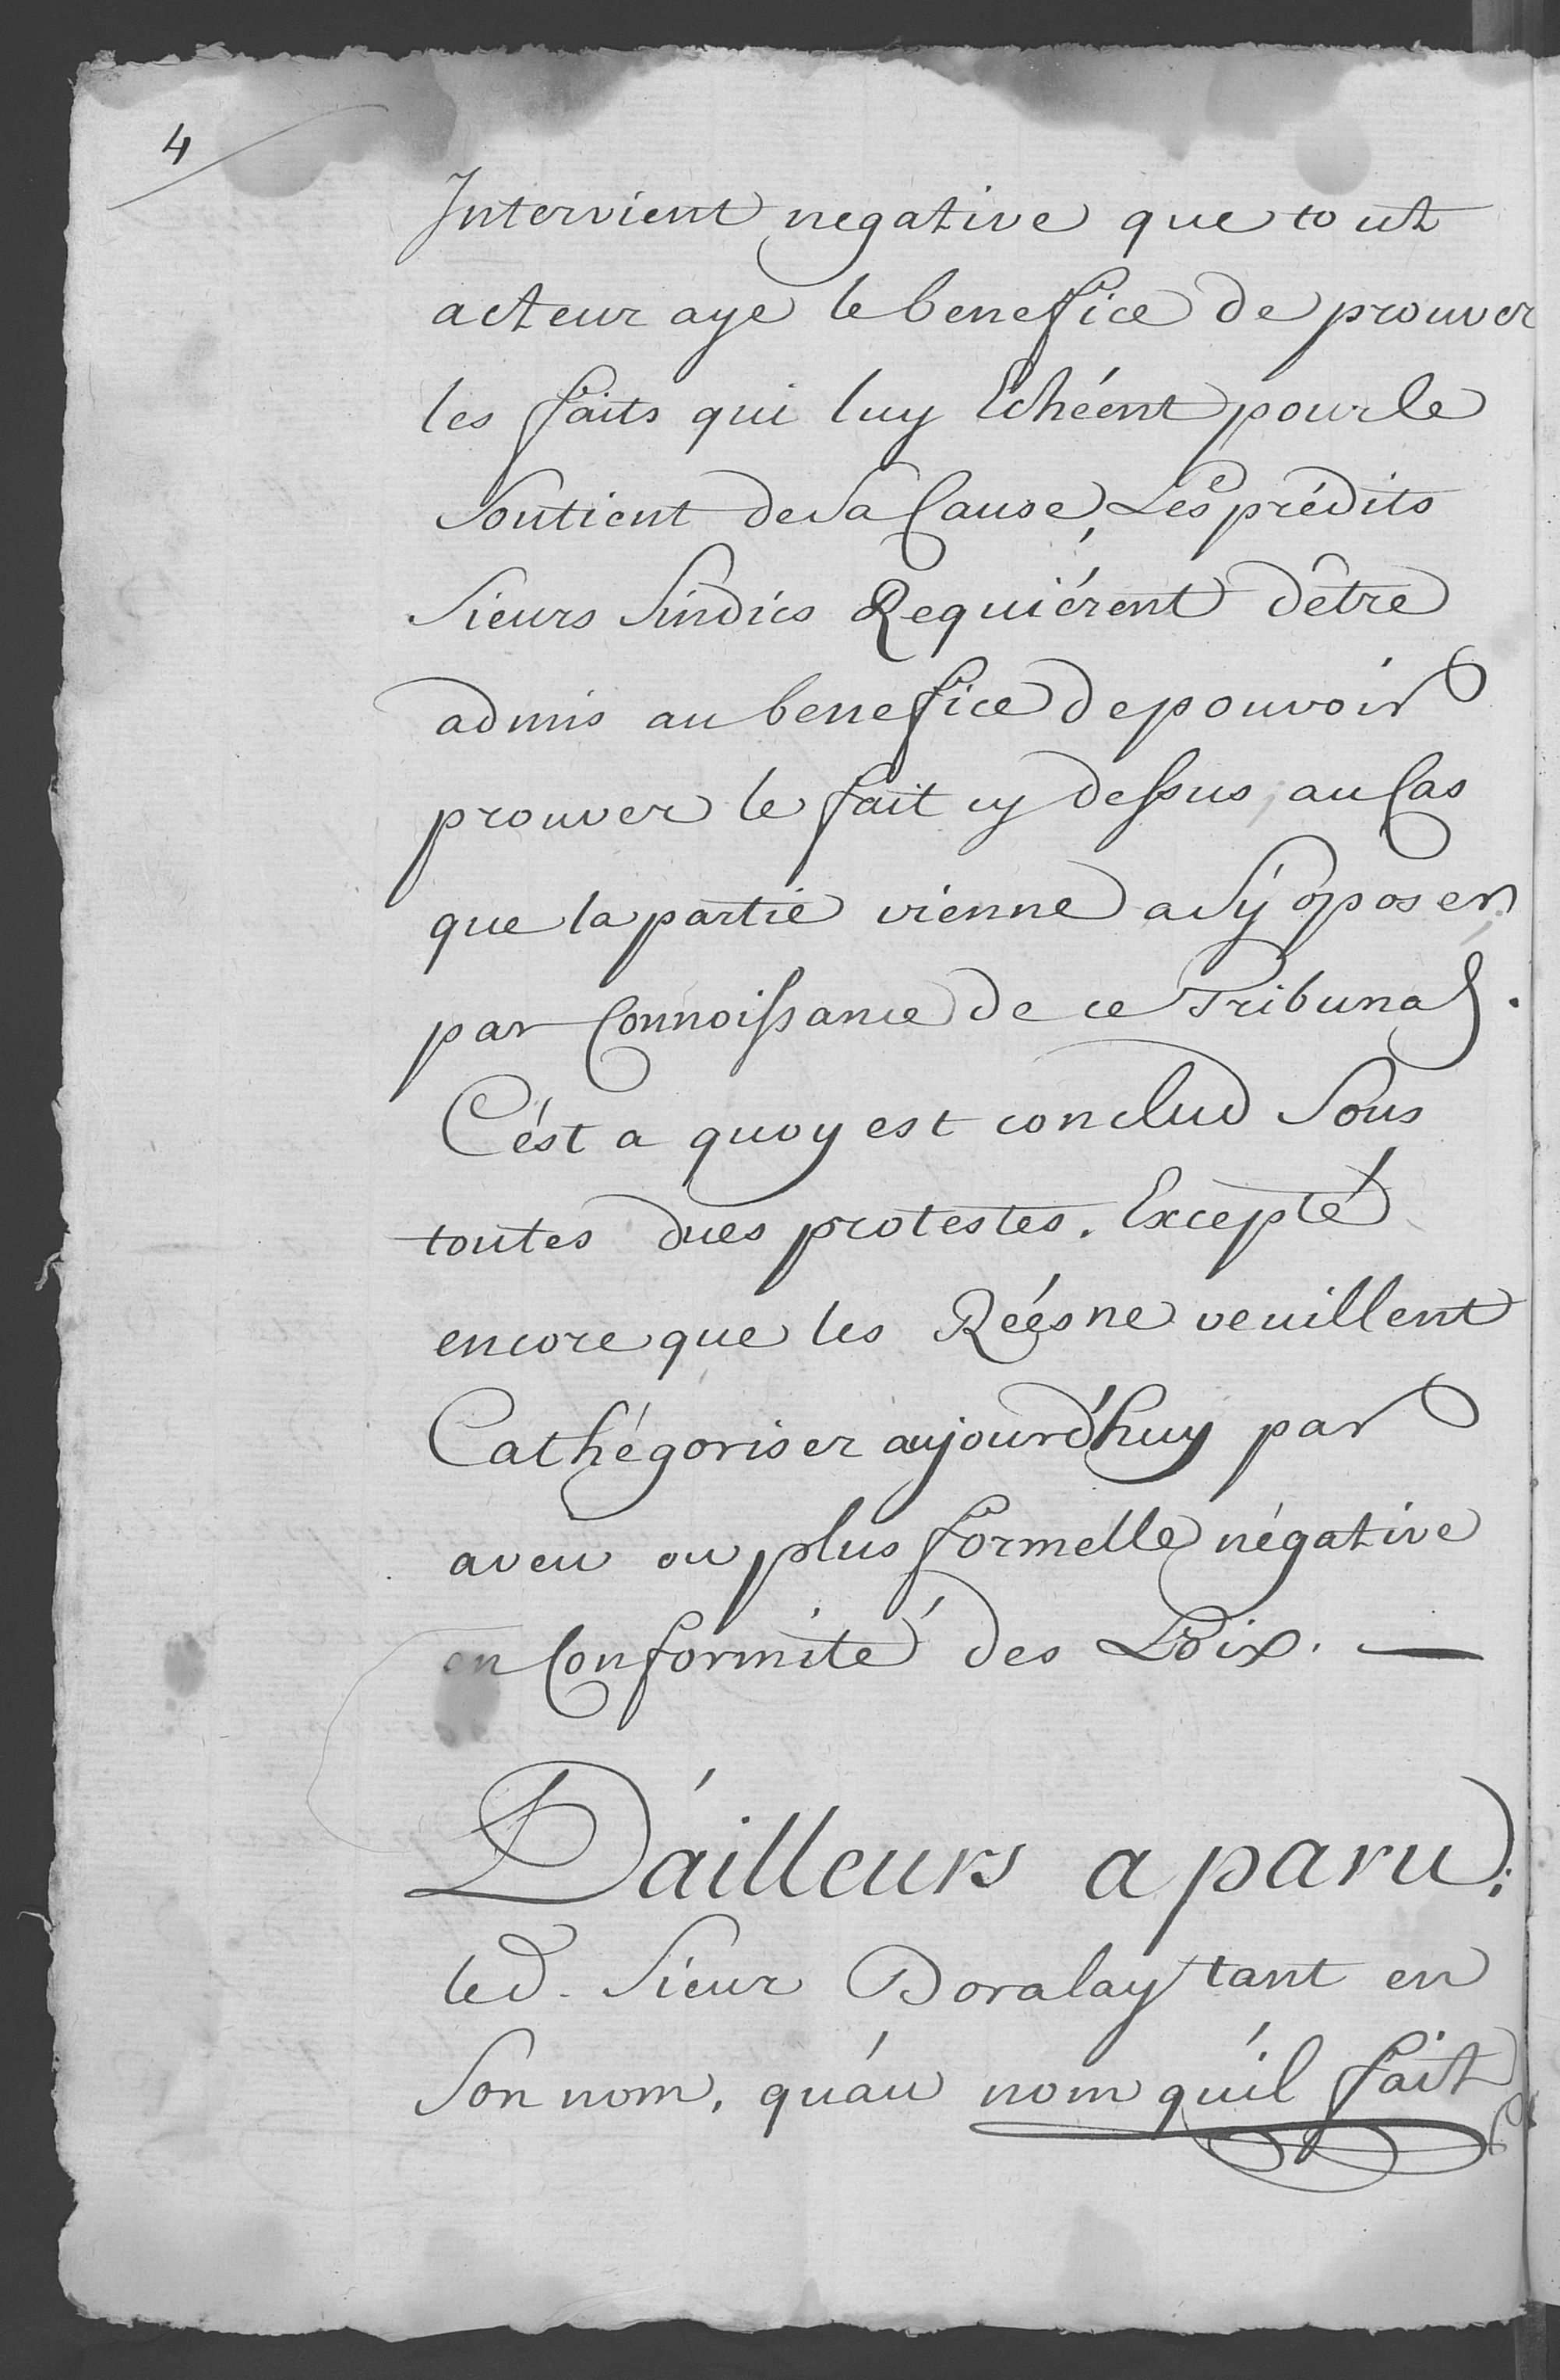 4
Intervient negative que tout
acteur aye le benefice de prouver
les faits qui luy Echéent pour le
Soutient de Sa Cause, Les prédits
Sieurs Sindics Requiérent d'être
admis au benefice de pouvoir
prouver le fait cy dessus, au Cas
que la partie vienne a S'y oposer,
par Connoissance de ce Tribunal.
C'ést a quoy est conclud Sous
toutes dues protestes. Excepté
encore que les Réés ne veuillent
Cathégoriser aujourd'huy par
aveu ou plus formelle négative
en Conformité des Loix. —
D'ailleurs a paru;
led. Sieur Boralay tant en
Son nom, qu'au nom qu'il fait